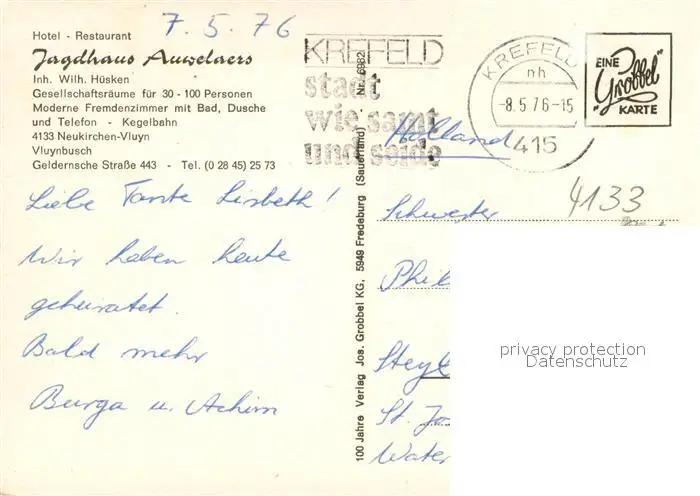 7.5.76
Hotel - Restaurant
Jagdhaus Auwelaers
Inh. Wilh. Hüsken
Gesellschaftsräume für 30 - 100 Personen
Moderne Fremdenzimmer mit Bad, Dusche
und Telefon - Kegelbahn
4133 Neukirchen-Vluyn
Vluynbusch
Geldernsche Straße 443 - Tel. (0 28 45) 25 73
Liebe Tante Lisbeth!
Wir haben heute
geheiratet.
Bald mehr
Burga u. Achim
100 Jahre Verlag Jos. Grobbel KG, 5949 Fredeburg (Sauerland) · Nr. 6982
KREFELD
stadt
wie samt
und seide
KREFELD
nh
-8.5.76-15
415
EINE
"Grobbel"
KARTE
Holland
4133
Schwester
Phil
Steyl
St. Jo
Water
privacy protection
Datenschutz